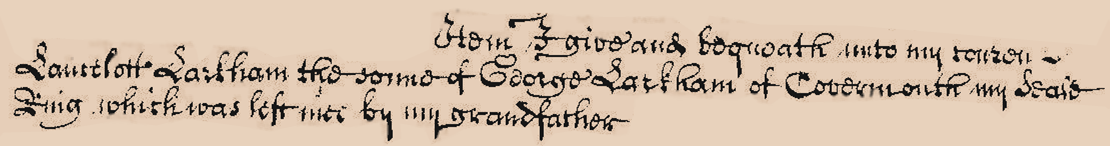 Item I give and bequeath unto my cozen
Lancelott Larkham the sonne of George Larkham of Cockermouth my Seale
Ring which was left mee by my grandfather